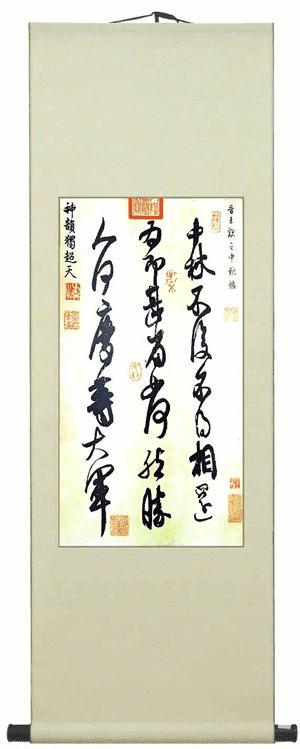 晋王献之中秋帖
中秋不復不得相還
為即甚省如何然勝
人何慶等大軍
神韻獨超天